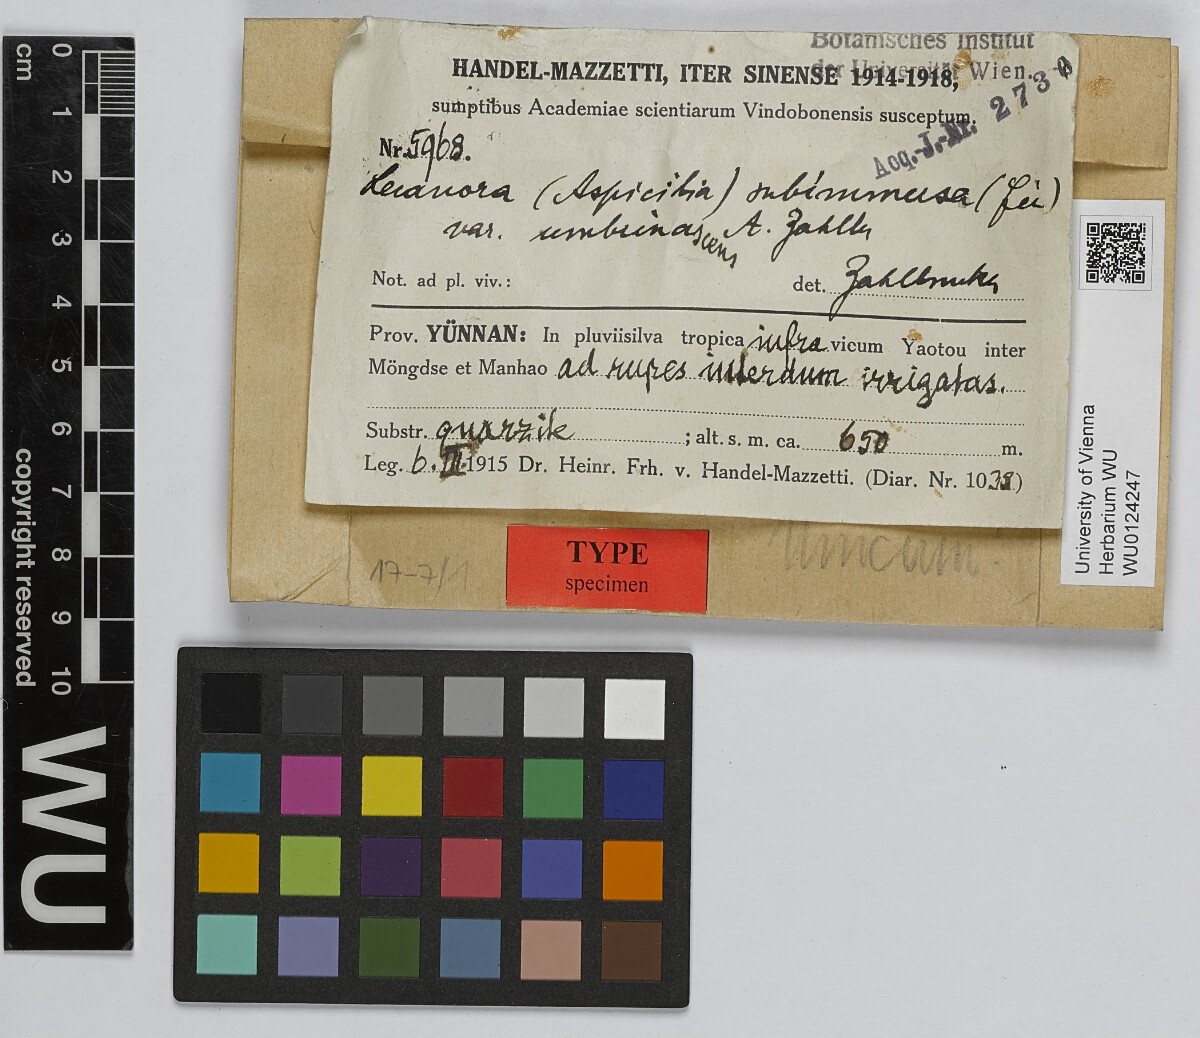 cm
0
1
2
3
4
5
6
7
8
9
10
copyright reserved
WU
Botanisches Institut
der Universität Wien.
Acq.-J.-Nr. 2730
HANDEL-MAZZETTI, ITER SINENSE 1914-1918,
sumptibus Academiae scientiarum Vindobonensis susceptum.
Nr. 5968.
Lecanora (Aspicilia) subimmersa (Fée)
var. umbrinascens A. Zahlbr
Not. ad pl. viv.: det. Zahlbruckn
Prov. YÜNNAN: In pluviisilva tropica infra vicum Yaotou inter
Möngdse et Manhao ad rupes interdum irrigatas.
Substr. quarzit ; alt. s. m. ca. 650 m.
Leg. 6. III. 1915 Dr. Heinr. Frh. v. Handel-Mazzetti. (Diar. Nr. 1038.)
TYPE
specimen
17-7/1
Unicum.
University of Vienna
Herbarium WU
WU0124247